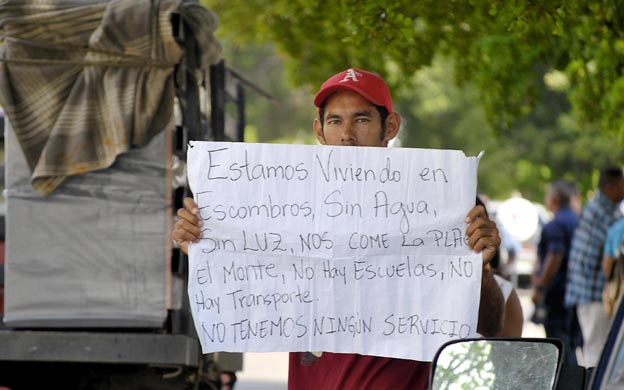 A
Estamos Viviendo en
Escombros, Sin Agua,
Sin LUZ, NOS COME La PLAGA
el Monte, No Hay Escuelas, NO
Hay Transporte.
NO TENEMOS NINGÚN SERVICIO